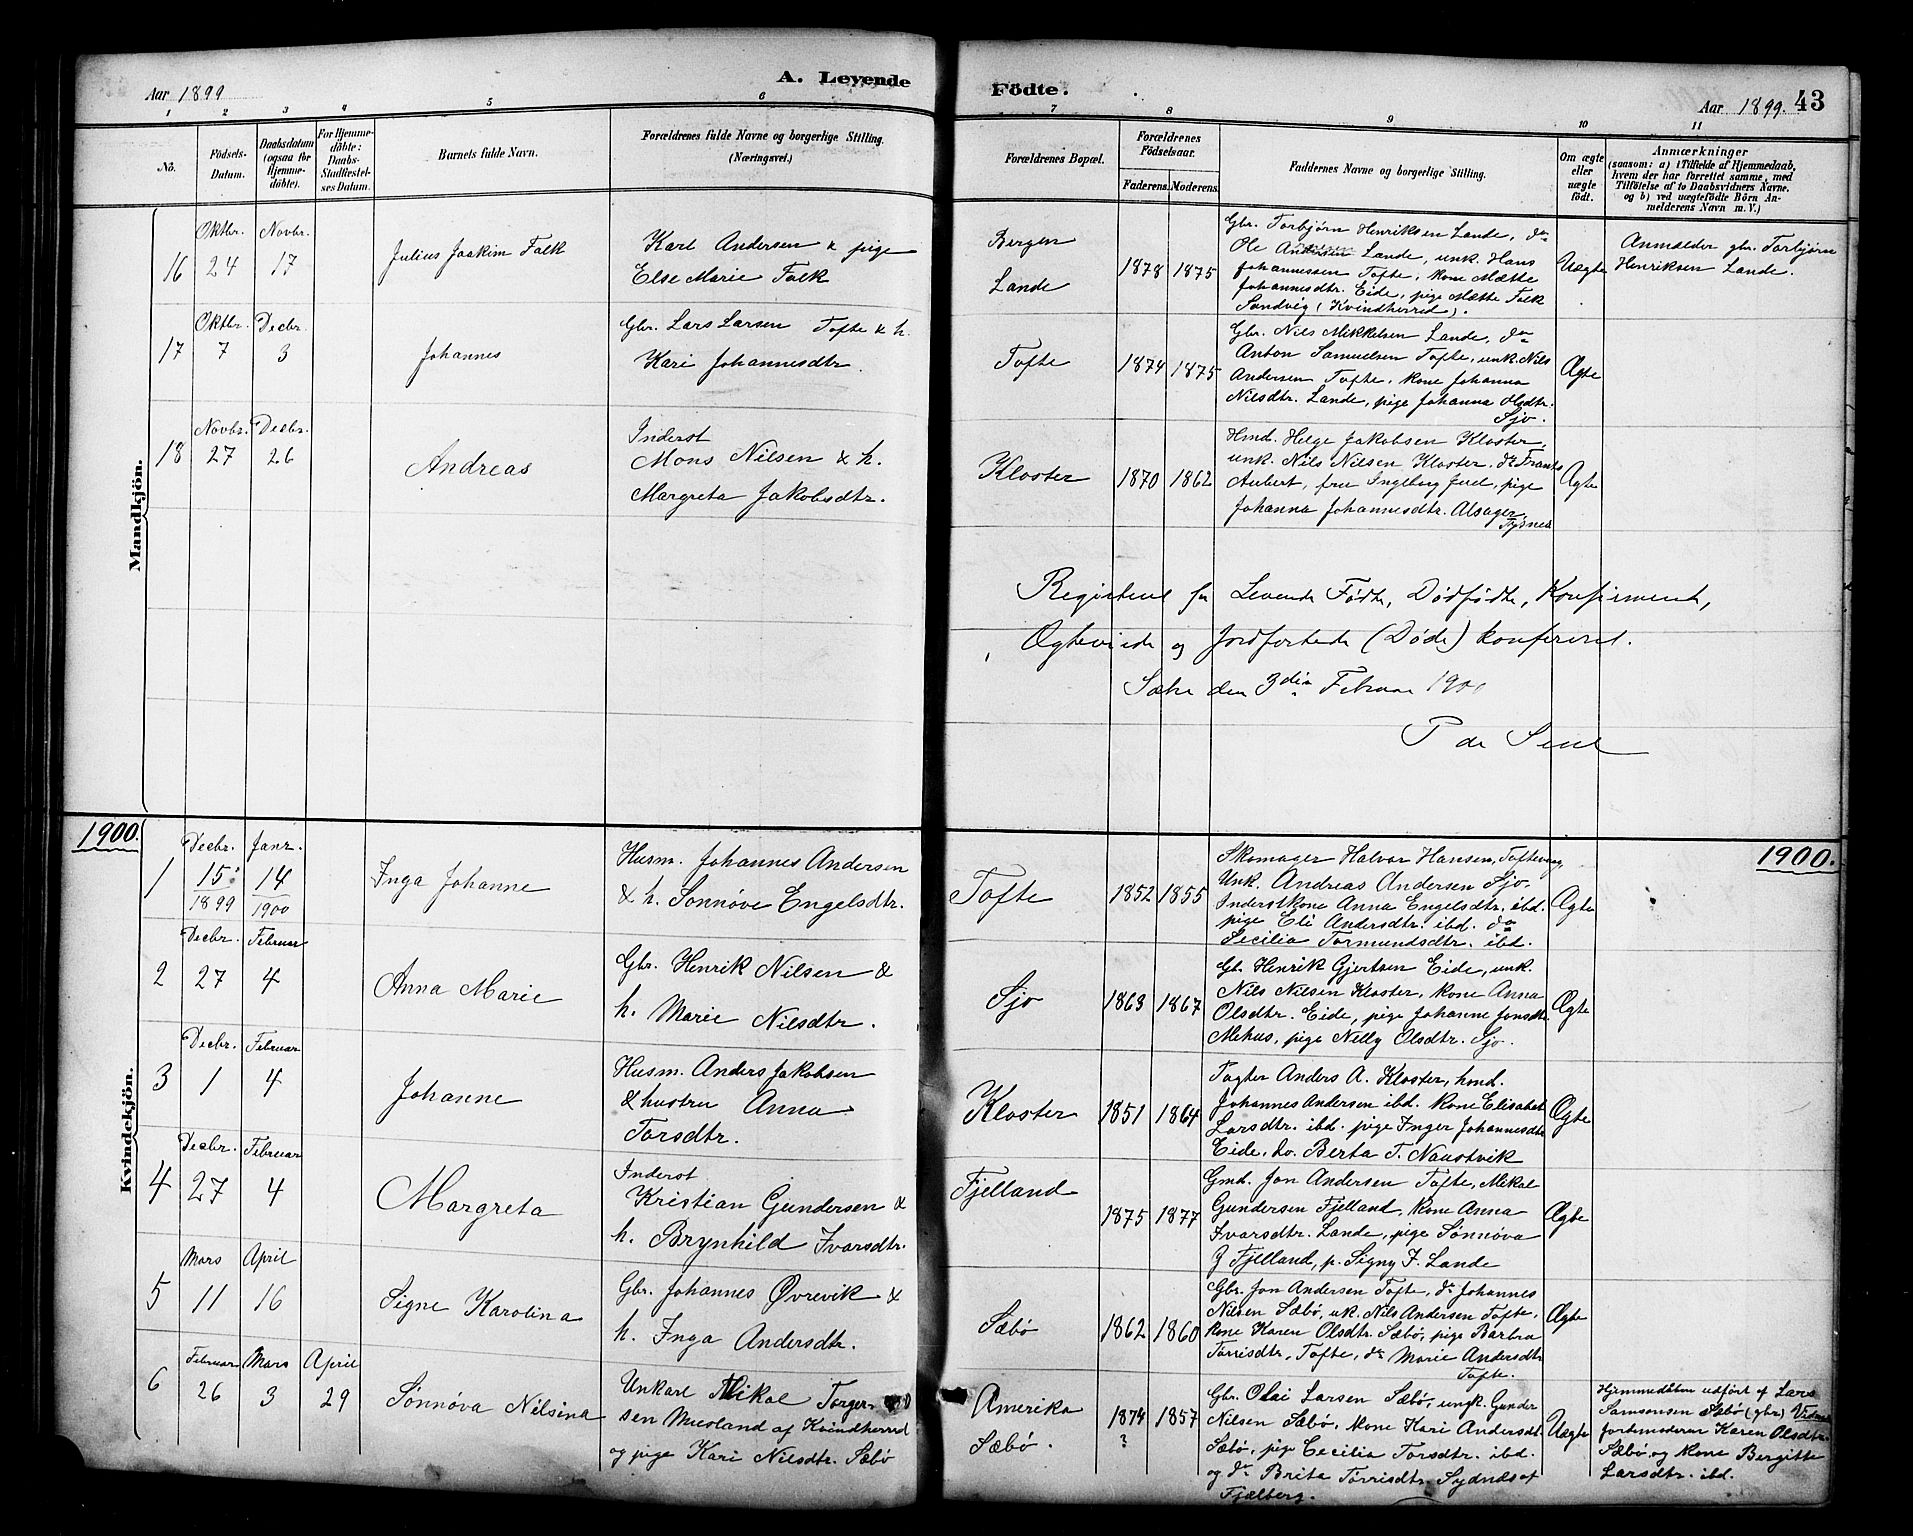 A. Levende
Födte.
Aar 1899
Aar 1899. 43
1 2 3 4 5 6 7 8 9 10 11
No.
Födsels-
Datum.
Daabsdatum
(ogsaa for
Hjemme-
döbte).
For Hjemme-
döbte:
Daabs-
Stadfæstel-
ses Datum.
Barnets fulde Navn.
Forældrenes fulde Navne og borgerlige Stilling.
(Næringsvei.)
Forældrenes Bopæl.
Forældrenes
Födselsaar.
Faderens. Moderens.
Faddernes Navne og borgerlige Stilling.
Om ægte
eller
uægte
født.
Anmærkninger
(saasom: a) i Tilfælde af Hjemmedaab,
hvem der har forrettet samme, med
Tilföielse af to Daabsvidners Navne.
og b) ved uægtefödte Börn An-
melderens Navn m. V.)
Mandkjön.
16
Oktbr.
24
Novbr.
17
Julius Joakim Falk
Karl Andersen & pige
Else Marie Falk
Bergen
Lande
1878 1875
Gbr. Torbjørn Henriksen Lande, do
Ole Andersen Lande, unk. Hans
Johannessen Tofte, kone Mætte
Johannesdtr. Eide, pige Mætte Falk
Sandvig (Kvindherred).
Uægte
Anmelder gbr. Torbjørn
Henriksen Lande.
17
Oktbr.
7
Decbr.
3
Johannes
Gbr. Lars Larsen Tofte & h.
Kari Johannesdtr.
Tofte
1874 1875
Gbr. Nils Mikkelsen Lande, do
Anton Samuelsen Tofte, unk. Nils
Andersen Tofte, kone Johanna
Nilsdtr. Lande, pige Johanna Olsdtr.
Sjo.
Ægte
18
Novbr.
27
Decbr.
26
Andreas
Inderst
Mons Nilsen & h.
Margreta Jakobsdtr.
Kloster
1870 1862
Hmd. Helge Jakobsen Kloster,
unk. Nils Nilsen Kloster, do Frants
Aubert, fru Ingeborg Juel, pige
Johanna Johannesdtr. Alsager,
Tysnes
Ægte
Levende Fødte, Dødfødte, Konfirmerte,
Ægteviede og Jordfæstede (Døde) konfereret.
den 3die Februar 1900
1900.
1900.
Kvindekjön.
1
Decbr.
15
1899
Janr.
14
1900
Inga Johanne
Husm. Johannes Andersen
& h. Sønnøve Engelsdtr.
Tofte
1852 1855
Skomager Halvor Hansen, Toftevaag,
Unk. Andreas Andersen Sjo.
Inderstkone Anna Engelsdtr. ibd.
pige Eli Andersdtr. ibd. do
Cecilia Tormundsdtr. ibd.
Ægte
2
Decbr.
27
Februar
4
Anna Marie
Gbr. Henrik Nilsen &
h. Marie Nilsdtr.
Sjo
1863 1867
Gb. Henrik Gjertsen Eide, unk.
Nils Nilsen Kloster, kone Anna
Olsdtr. Eide, pige Johanne Jonsdtr.
Mehus, pige Nelly Olsdtr. Sjo.
Ægte
3
Decbr.
1
Februar
4
Johanne
Husm. Anders Jakobsen
& hustru Anna
Torsdtr.
Kloster
1851 1864
Tagter Anders A. Kloster, hmd.
Johannes Andersen ibd. kone Elisabet
Larsdtr. ibd. pige Inger Johannesdtr
Eide, do. Berta T. Naustvik
Ægte
4
Decbr.
27
Februar
4
Margreta
Inderst
Kristian Gundersen &
h. Brynhild Ivarsdtr.
Fjelland
1875 1877
Gmd. Jon Andersen Tofte, Mikal
Gundersen Fjelland, kone Anna
Ivarsdtr. Lande, pige Sønnøva
G Fjelland, p. Signy I. Lande
Ægte
5
Mars
11
April
16
Signe Karolina
Gbr. Johannes Øvrevik &
h. Inga Andersdtr.
Sæbø
1862 1860
Gbr. Jon Andersen Tofte, do Johannes
Nilsen Sæbø, uk. Nils Andersen Tofte,
kone Karen Olsdtr. Sæbø, pige Barbra
Torrisdtr, Tofte, do Marie Andersdtr
Tofte.
Ægte
6
Februar
26
Mars
3
April
29
Sønnøva Nilsina
Unkarl Mikal Torger-
sen Musland af Kvindherred
og pige Kari Nilsdtr. Sæbø
Amerika
Sæbø.
1874 1857
?
Gbr. Olai Larsen Sæbø, ungk. Gunder
Nilsen Sæbø, kone Kari Andersdt.
Sæbø, pige Cecilia Torsdtr. ibd.
og do Brita Tørrisdtr. Sydnes af
Fjælberg.
Uægte
Hjemmedåben udført af Lars
Samsonsen Sæbø (gbr) Vidner
jordemoderen Karen Olsdtr.
Sæbø og kone Bergitte
Larsdtr. ibd.